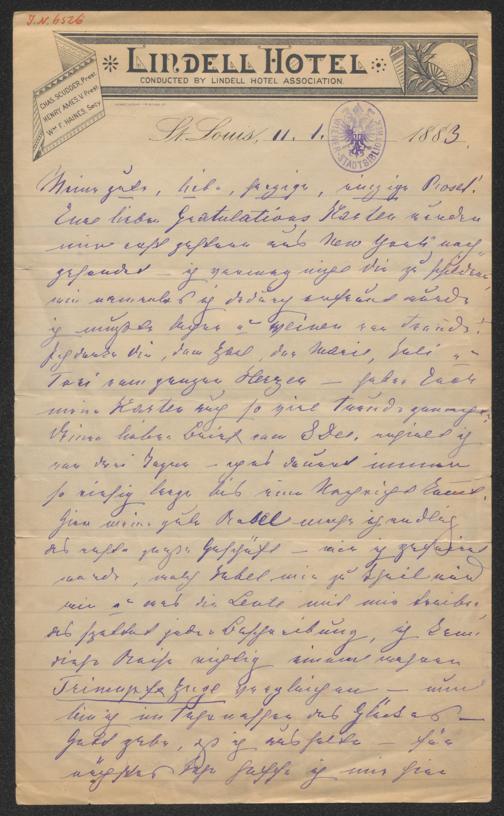 J.N. 6526
LINDELL HOTEL
CONDUCTED BY LINDELL HOTEL ASSOCIATION.
CHAS. SCUDDER, Prest.
HENRY AMES, V. Prest.
Wm F. HAINES, Secy.
St. Louis, 11. 1. 1883.
WIENER STADTBIBLIOTHEK
Meine gute, liebe, herzige, einzige Rosel!
Eure lieben Gratulations Karten wurden
mir erst gestern aus New York nach
gesendet – ich vermag nicht Dir zu schildern
wie namenlos ich dadurch erfreut wurde
ich mußte lachen u weinen vor Freude!
ich danke Dir, dem, der Marie, Juli u
Toni vom ganzen Herzen – haben Euch
meine Karten auch so viel Freude gemacht?
Deinen lieben Brief vom 8 Dec. erhielt ich
vor drei Tagen – es dauert immer
so riesig lange bis eine Nachricht kommt.
Hier meine gute mache ich endlich
das große Geschäft – wie ich gefeiert
werde, welch Jubel mir zu Theil wird
wie u was die Leute mit mir treiben
das spottet jeder Beschreibung, ich kann
diese Reise richtig einem wahren
Triumphzuge vergleichen – nun
bin ich im Fahrwasser des Glückes –
Gott gebe, daß ich aushalte – für
nächstes Jahr hoffe ich mir hier